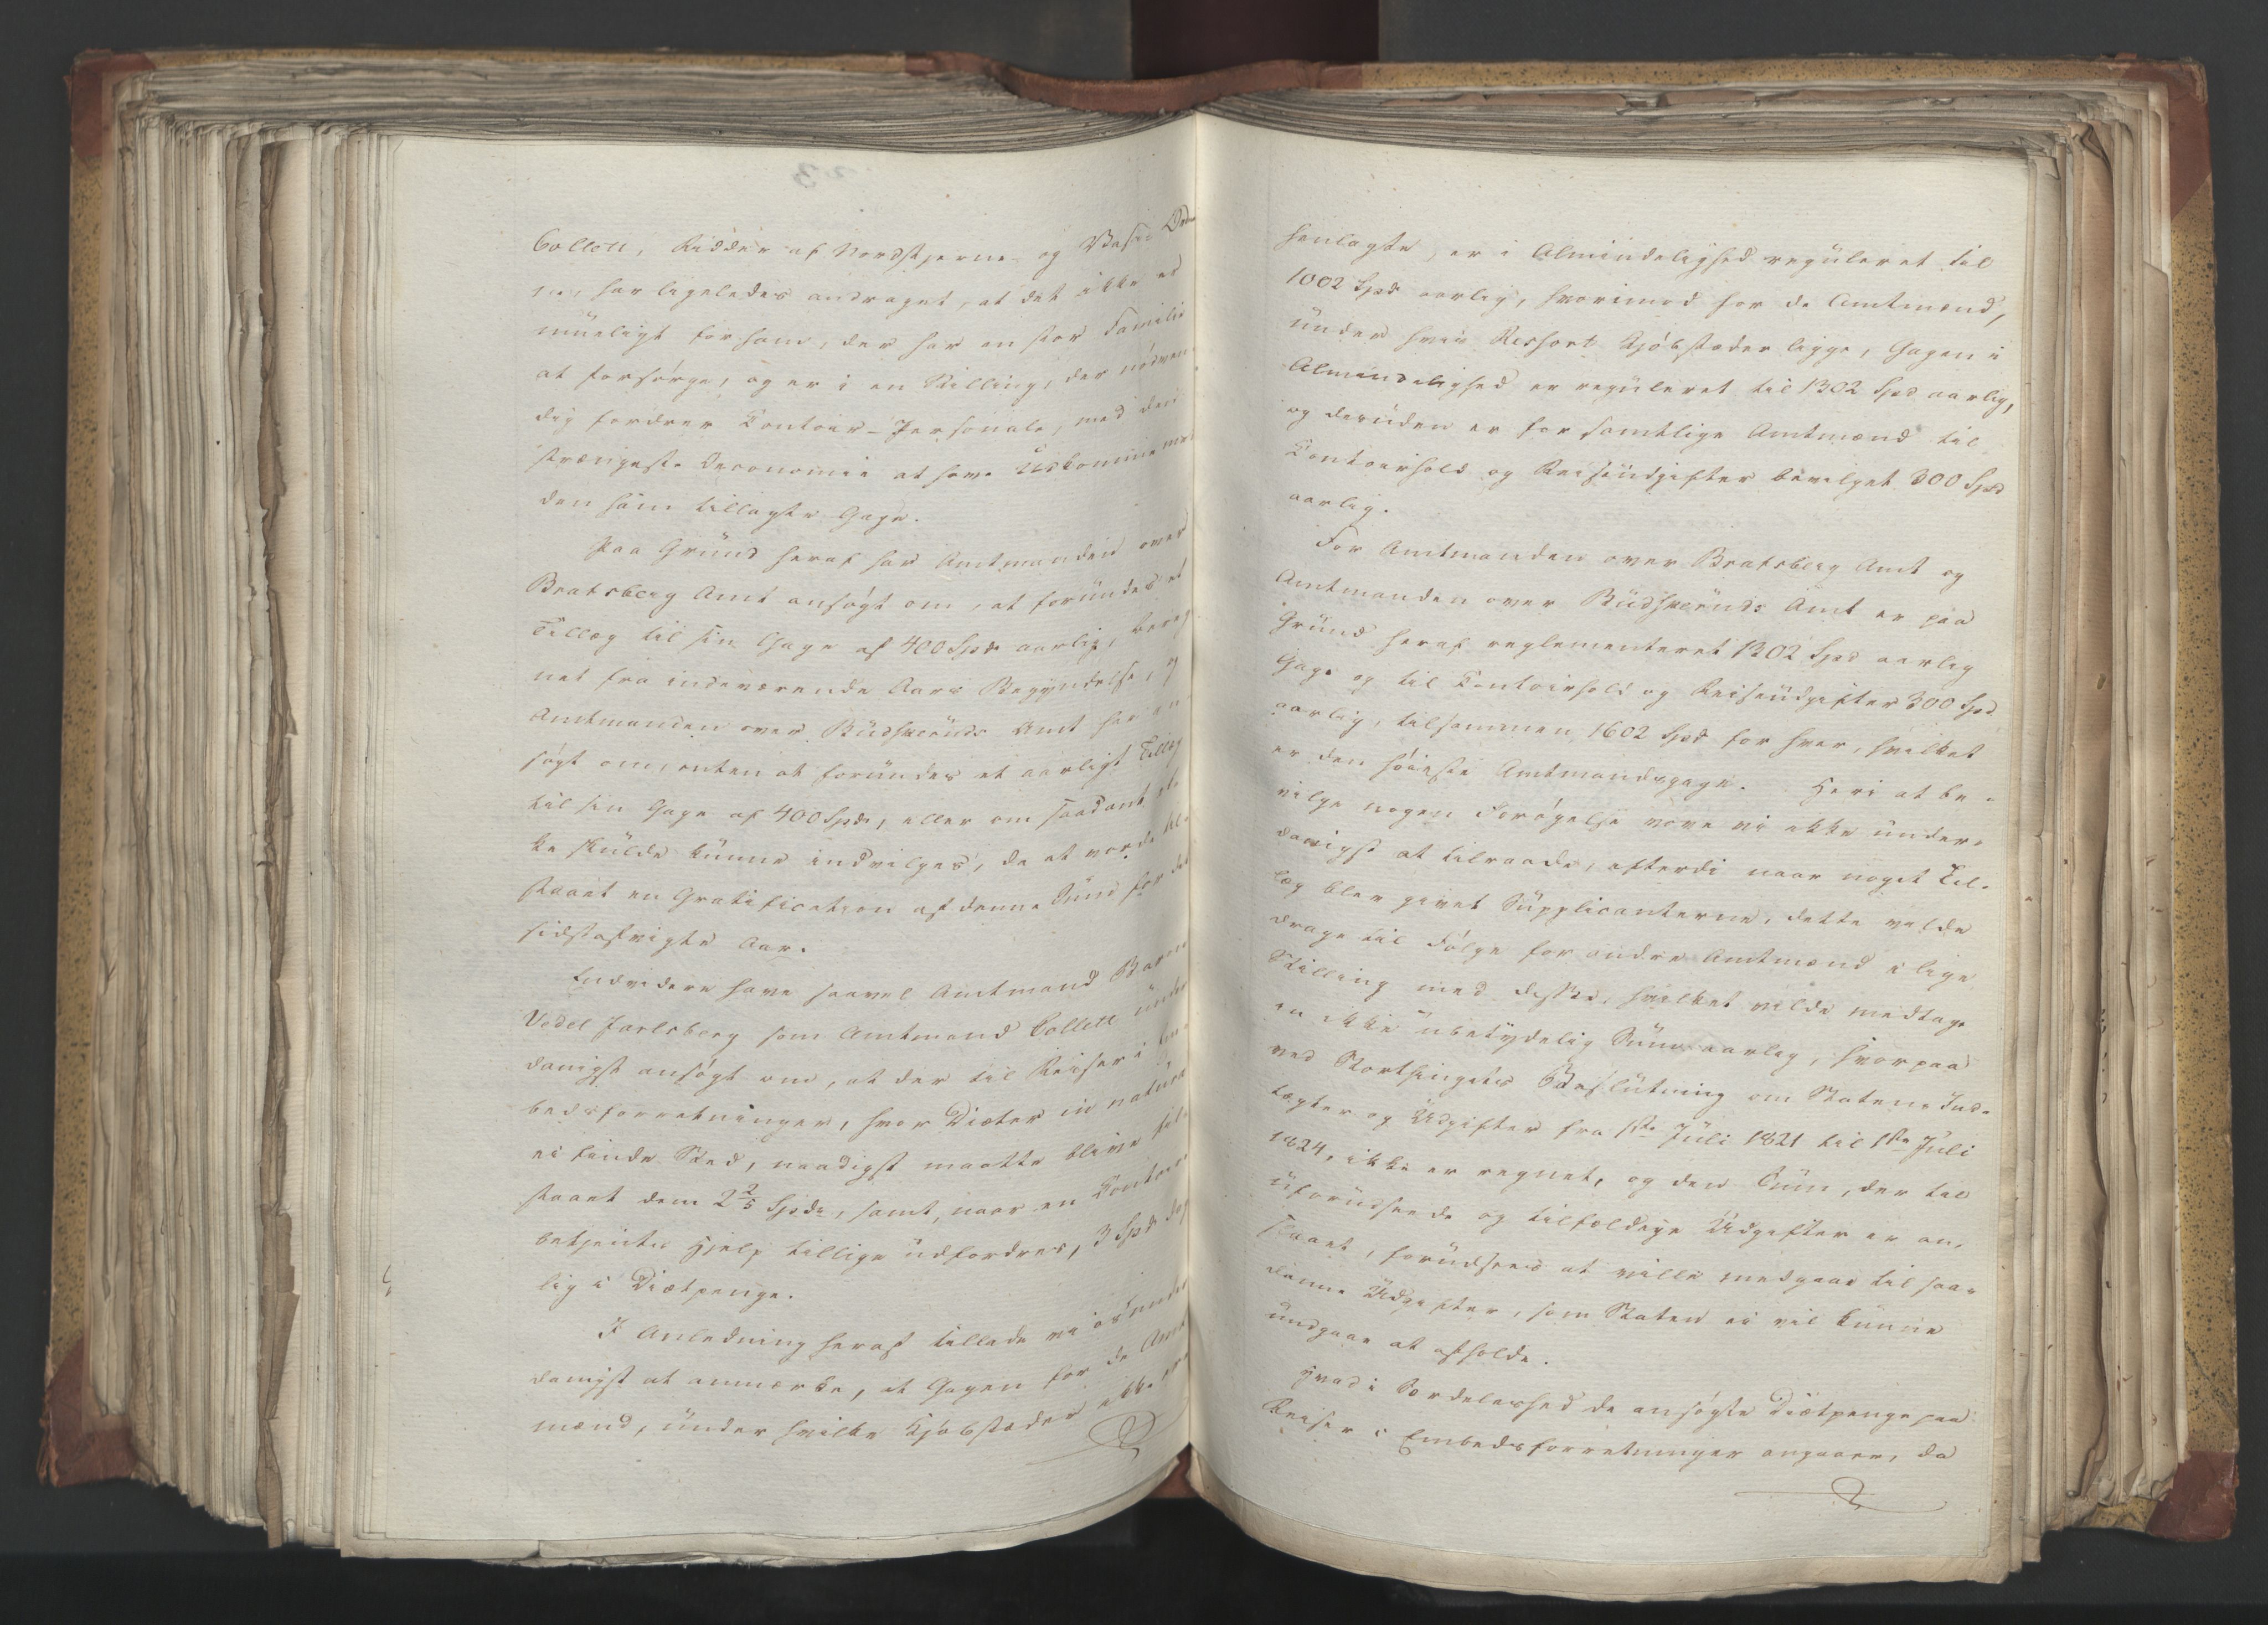 Collett, Ridder af Nordstjerne- og Vasa Orde-
ne, har ligeledes andraget, at det ikke er
mueligt for ham, der har en stor Familie
at forsørge, og er i en Stilling, der nødven-
dig fordrer Contoir-Personale, med den
strængeste Oeconomie at have Udkomme med
den ham tillagte Gage.
Paa Grund heraf har Amtmanden over
Bratsberg Amt ansøgt om, at forundes et
Tillæg til sin Gage af 400 Spdr aarlig, bereg-
net fra indeværende Aars Begyndelse, og
Amtmanden over Budskeruds Amt har an-
søgt om, enten at forundes et aarligt Tillæg
til sin Gage af 400 Spdr, eller om saadant ik-
ke skulde kunne indvilges, da at vorde til-
staaet en Gratification af denne Sum for det
sidstafvigte Aar.
Endvidere have saavel Amtmand Baron
Vedel Jarlsberg som Amtmand Collett under-
danigst ansøgt om, at der til Reiser i Em-
bedsforretninger, hvor Diæter in natura
ei finde Sted, naadigst maatte blive til-
staaet dem 2 2/5 Spdr, samt, naar en Contoir-
betjents Hjelp tillige udfordres, 3 Spdr dag-
lig i Diætpenge.
I Anledning heraf tillade vi os under-
danigst at anmærke, at Gagen for de Amt-
mænd, under hvilke Kjøbstæder ikke ere
henlagte, er i Almindelighed reguleret til
1002 Spdr aarlig, hvorimod for de Amtmænd,
under hvis Ressort Kjøbstæder ligge, Gagen i
Almindelighed er reguleret til 1302 Spd aarlig,
og desuden er for samtlige Amtmænd til
Contoirhold og Reiseudgifter bevilget 300 Spd
aarlig.
For Amtmanden over Bratsberg Amt og
Amtmanden over Budskeruds Amt er paa
Grund heraf reglementeret 1302 Spd aarlig
Gage og til Contoirhold og Reiseudgifter 300 Spd
aarlig, tilsammen 1602 Spd for hver, hvilket
er den høieste Amtmandsgage. Heri at be-
vilge nogen Forøgelse vove vi ikke under-
danigst at tilraade, efterdi naar noget Til-
læg blev givet Supplicanterne, dette vilde
drage til Følge for andre Amtmænd i lige
Stilling med disse, hvilket vilde medtage
en ikke ubetydelig Sum aarlig, hvorpaa
ved Storthingets Beslutning om Statens Ind-
tægter og Udgifter fra 1ste Juli 1821 til 1ste Juli
1824, ikke er regnet, og den Sum, der til
uforudseede og tilfældige Udgifter er an-
slaaet, forudsees at ville medgaae til saa-
danne Udgifter, som Staten ei vil kunne
undgaae at afholde.
Hvad i Særdeleshed de ansøgte Diætpenge paa
Reiser i Embedsforretninger angaaer, da